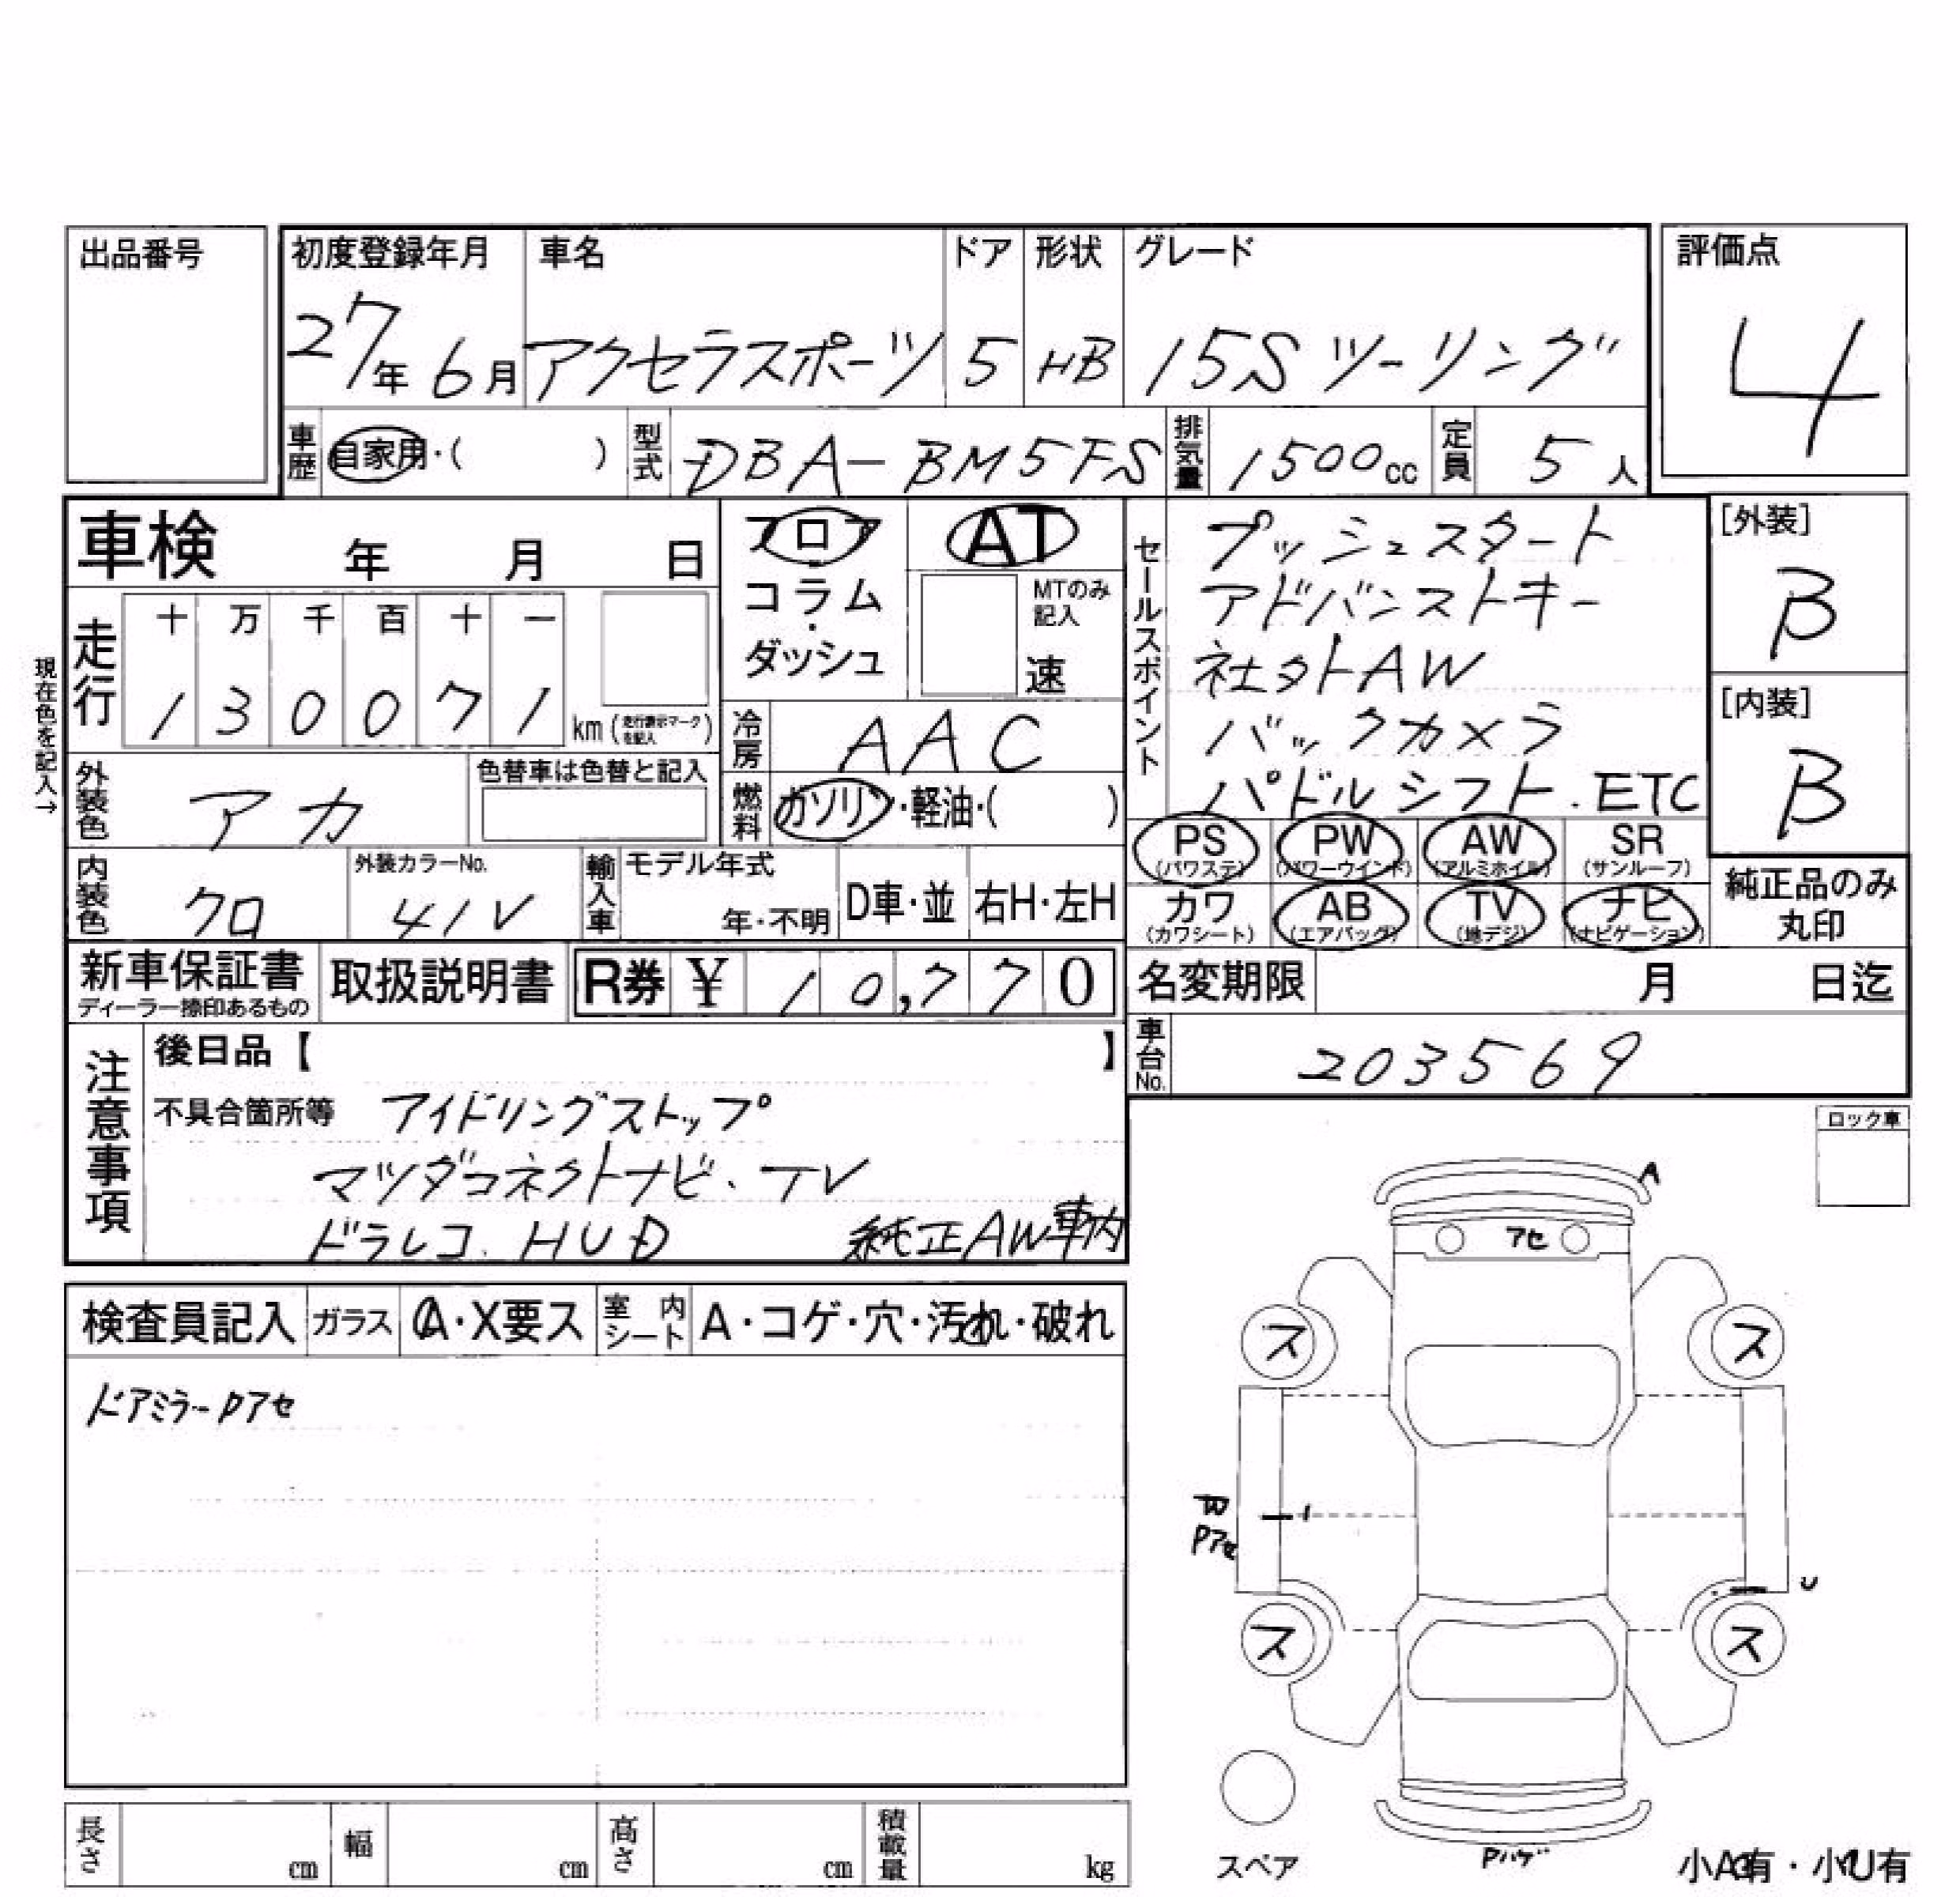 出品番号
初度登録年月 車名 ドア 形状 グレード 評価点
27年6月 アクセラスポーツ 5 HB 15Sツーリング 4
車歴 自家用・( ) 型式 DBA-BM5FS 排気量 1500cc 定員 5人
車検 年 月 日
フロア
コラム
・
ダッシュ
AT
MTのみ
記入
速
現在色を記入→
走行 十 万 千 百 十 一
1 3 0 0 7 1 km (走行表示マークを記入)
冷房 AAC
外装色 アカ 色替車は色替と記入
燃料 ガソリン・軽油・( )
内装色 クロ 外装カラーNo. 41V 輸入車 モデル年式 年・不明 D車・並 右H・左H
セールスポイント
プッシュスタート
アドバンストキー
社外AW
バックカメラ
パドルシフト.ETC
[外装]
B
[内装]
B
PS (パワステ) PW (パワーウインド) AW (アルミホイル) SR (サンルーフ)
カワ (カワシート) AB (エアバッグ) TV (地デジ) ナビ (ナビゲーション)
純正品のみ
丸印
新車保証書
ディーラー捺印あるもの
取扱説明書 R券 ¥ 10,770
名変期限 月 日迄
車台No. 203569
注意事項
後日品【 】
不具合箇所等 アイドリングストップ
マツダコネクトナビ、TV
ドラレコ、HUD 純正AW車内
ロック車
検査員記入 ガラス A・X要ス 室内シート A・コゲ・穴・汚れ・破れ
ドアミラーPアセ
A
アセ
ス ス
Pアセ
U
ス ス
スペア
Pハゲ
小A有・小U有
長さ cm 幅 cm 高さ cm 積載量 kg